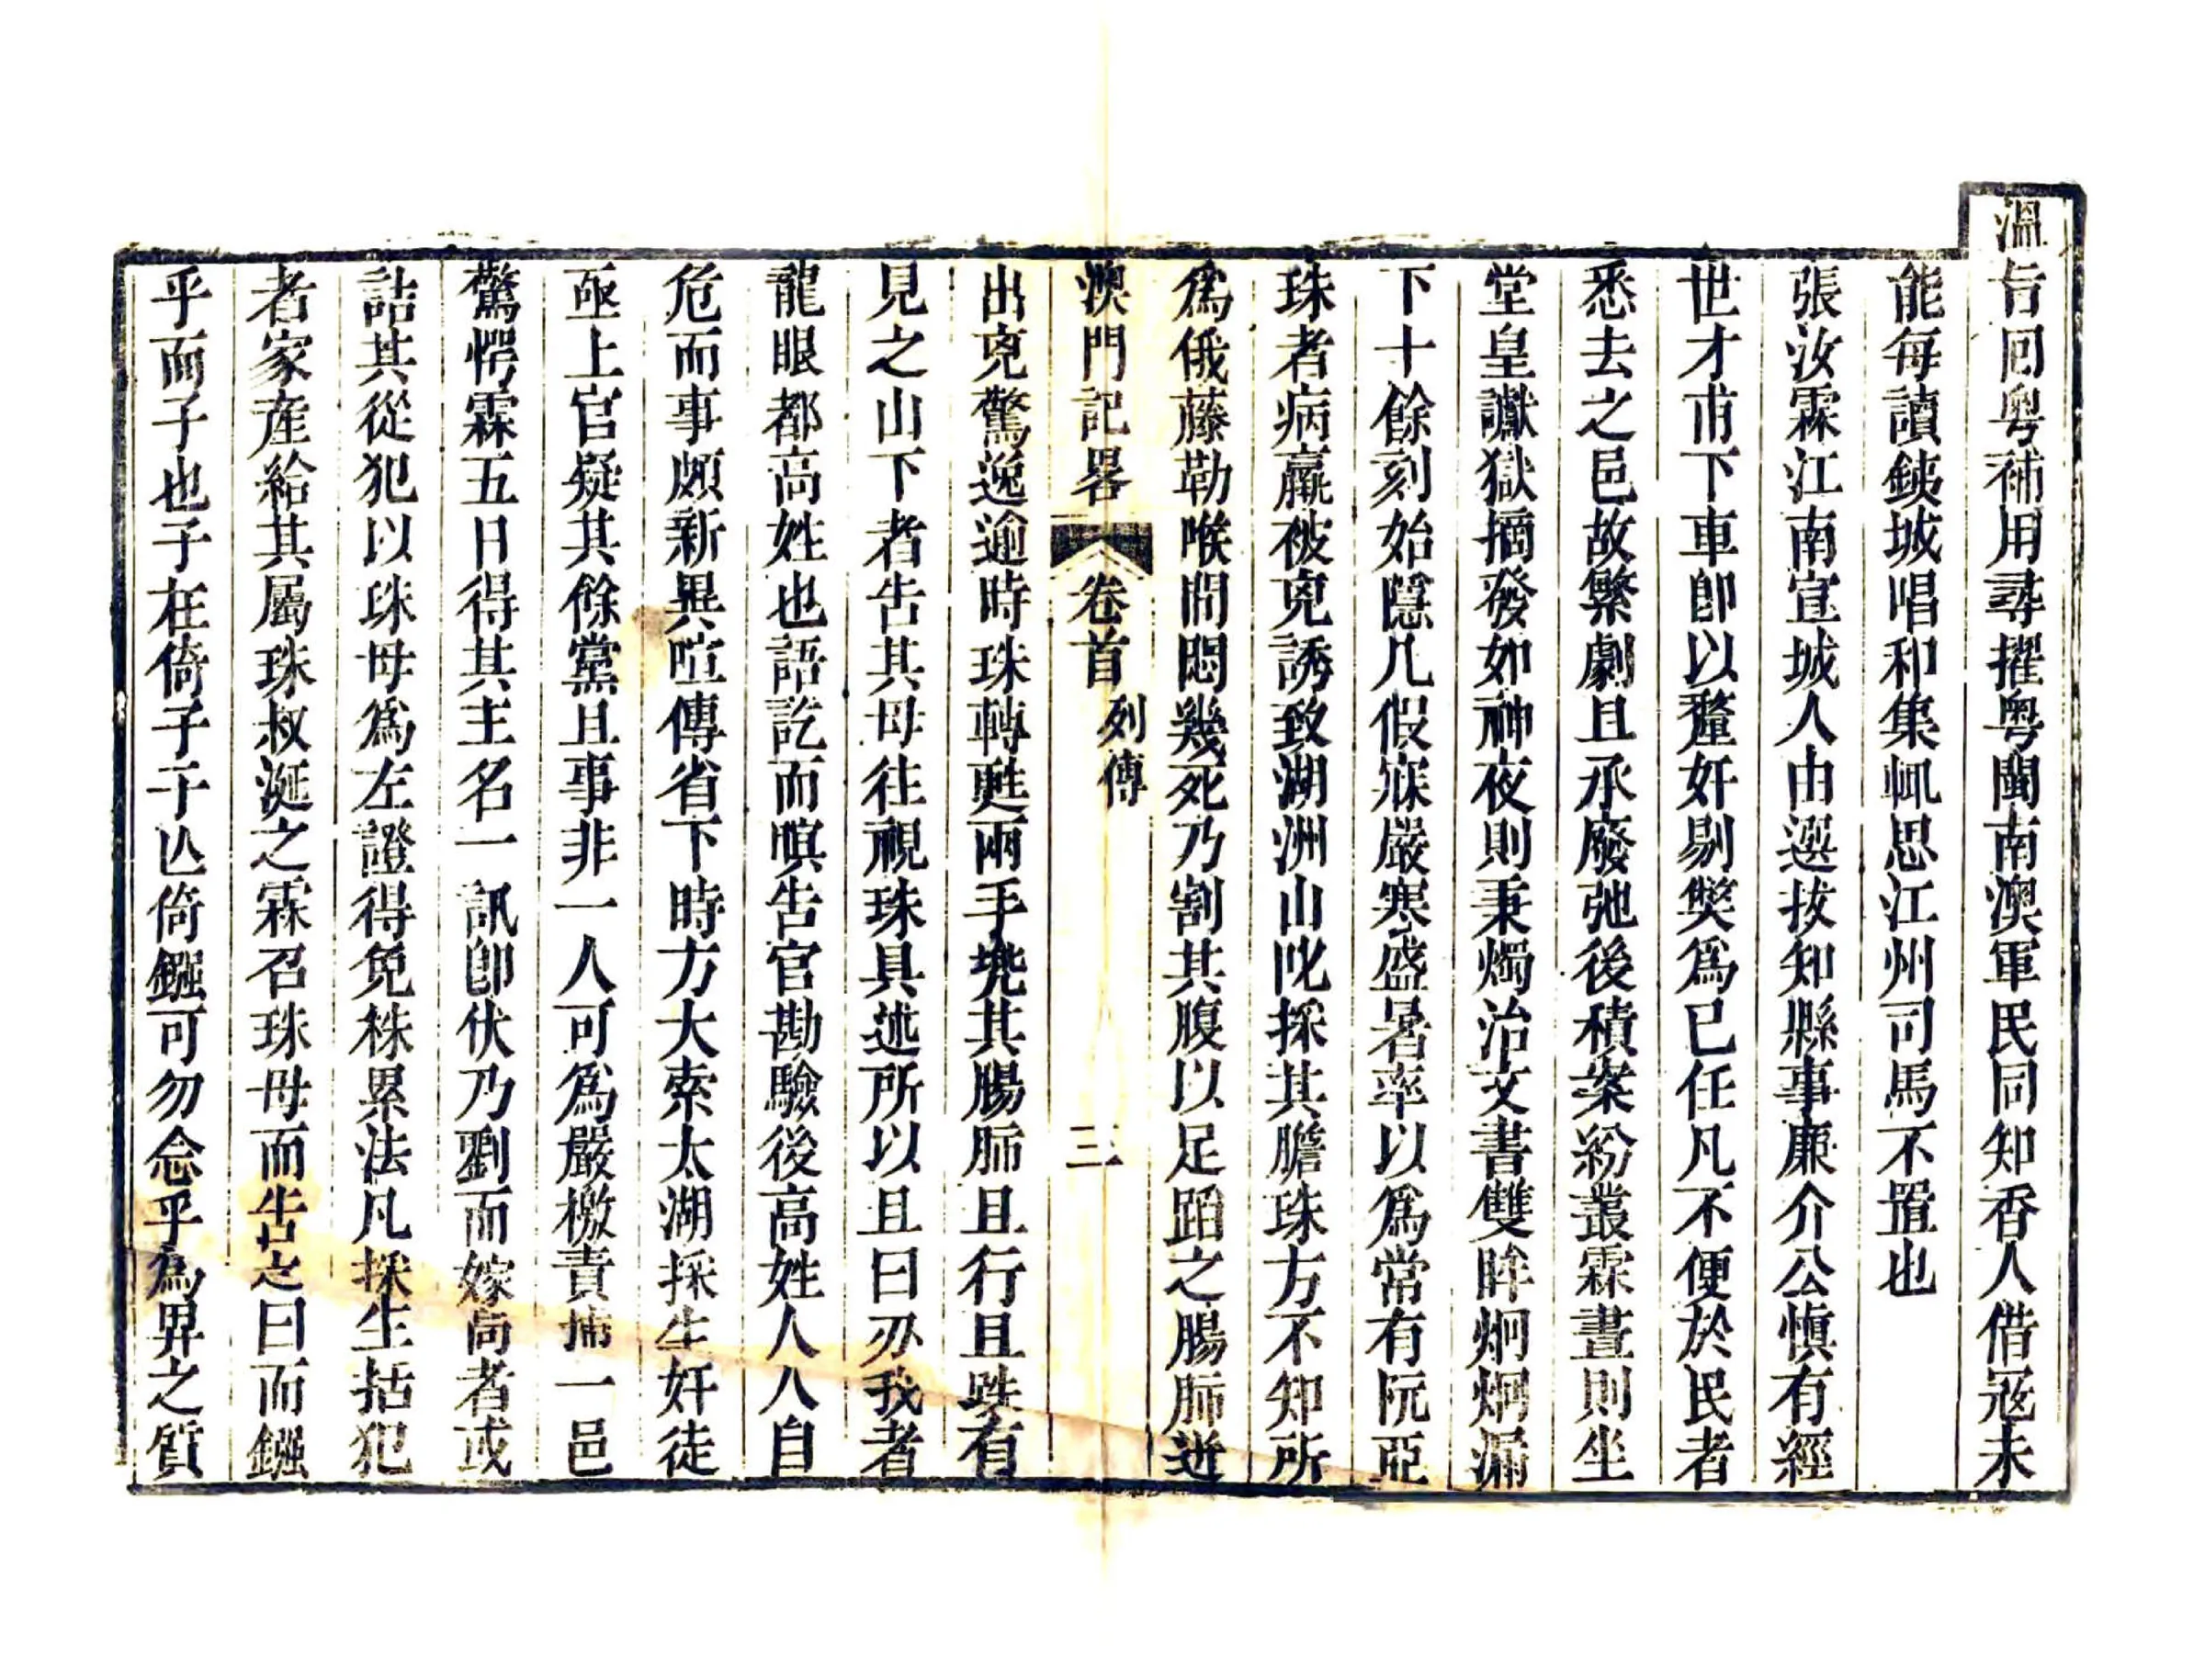 溫旨囘粵補用尋擢粵閩南澳軍民同知香人借寇未
能每讀鐵城唱和集輒思江州司馬不置也
張汝霖江南宣城人由選拔知縣事廉介公愼有經
世才甫下車卽以釐奸剔獘爲已任凡不便於民者
悉去之邑故繁劇且承廢弛後積案紛叢霖晝則坐
堂皇讞獄摘發如神夜則秉燭治文書雙眸炯炯漏
下十餘刻始隱几假寐嚴寒盛暑率以爲常有阮亞
珠者病羸被兇誘致湖洲山吪採其膽珠方不知所
爲俄藤勒喉間悶幾死乃割其腹以足蹈之腸肺迸
澳門記畧 卷首 列傳 三
出兇驚逸逾時珠轉甦兩手㧯其腸肺且行且跌有
見之山下者告其母往視珠具述所以且曰刃我者
龍眼都高姓也語訖而瞑告官勘驗後高姓人人自
危而事頗新異喧傳省下時方大索太湖採生奸徒
亟上官疑其餘黨且事非一人可爲嚴檄責捕一邑
驚愕霖五日得其主名一訊卽伏乃劉而嫁禍者或
詰其從犯以珠母爲左證得免株累法凡採生括犯
者家產給其屬珠叔涎之霖召珠母而告之曰而鏹
乎而子也子在倚子子亾倚鏹可勿念乎爲畀之質